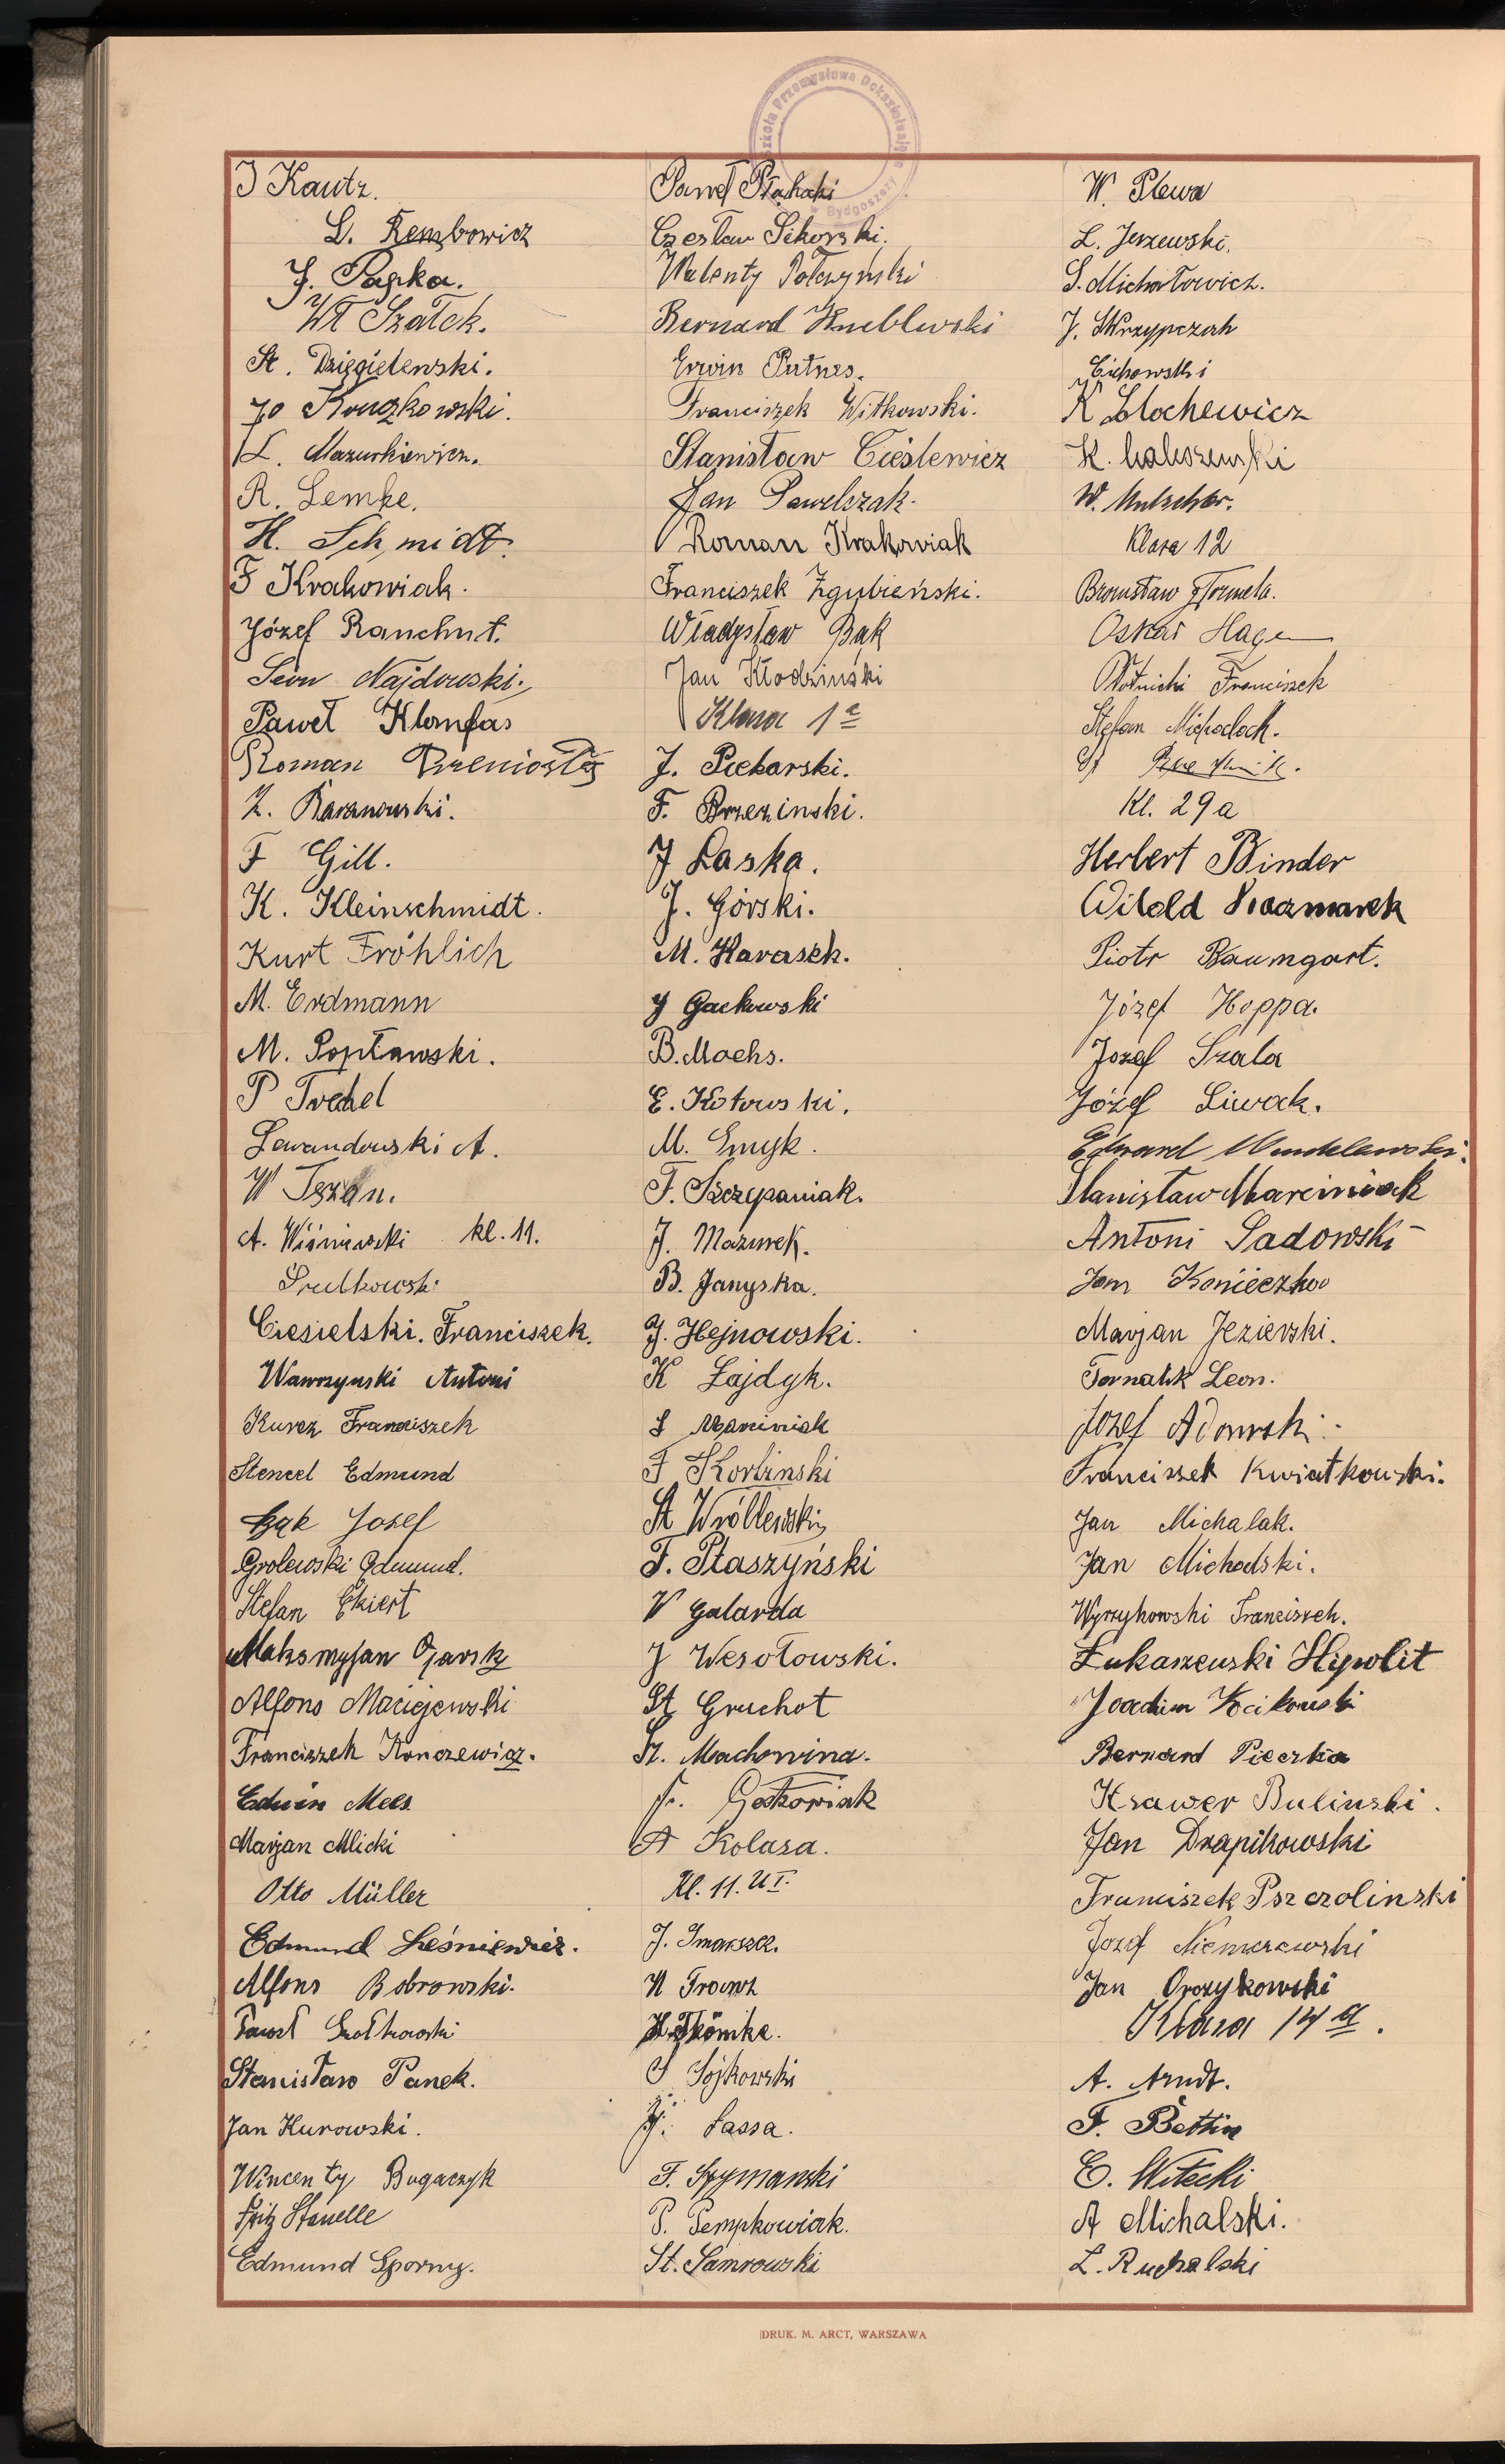 Szkoła Przemysłowa Dokształcająca w Bydgoszczy
J Kautz.
L. Rembowicz
J. Papka.
Wł Szałek.
St. Dzięgielewski.
Jo Kruszkowski.
L. Mazurkiewicz.
R. Lemke.
H. Schmidt.
F Krakowiak.
Józef Ranchut.
Leon Najdowski.
Paweł Klomfas
Roman
Z. Baranowski.
F Gill.
K. Kleinschmidt.
Kurt Fröhlich
M. Erdmann
M. Popławski.
P Trehel
Lewandowski A.
W Tezan.
A. Wiśniewski kl. 11.
Prutkowski
Ciesielski. Franciszek.
Wawrzynski Antoni
Kurcz Franciszek
Stencel Edmund
Bąk Josef
Grolewski Edmund.
Stefan Ekiert
Maksmyjan Ojarsk
Alfons Maciejewski
Franciszek Konczewicz.
Edwin Mees
Marjan Mlicki
Otto Müller
Edmund Leśniewicz.
Alfons Bobrowski.
Paweł Szołkowski
Stanisław Panek.
Jan Kurowski.
Wincenty Bugaczyk
Fritz Stanelle
Edmund Sporny.
Paweł Płachecki
Czesław Sikorski.
Walenty Połczyński
Bernard Kneblewski
Erwin Putnes.
Franciszek Witkowski.
Stanisław Cieślewicz
Jan Pawelszak.
Roman Krakowiak
Franciszek Zgubieński.
Władysław Bąk
Jan Kłodziński
Klasa 1a
J. Piekarski.
F. Brzezinski.
J Laska.
J. Górski.
M. Karasek.
J Gackowski
B. Mochs.
E. Kotowski.
M. Smyk.
F. Szczepaniak.
J. Mazurek.
B. Janyska.
J. Hejnowski.
K Łajdyk.
S Marciniak
F Korbinski
St Wróblewski
F. Ptaszyński
W Galarda
J Wesołowski.
St Gruchot
St. Machowina.
Fr. Goskowiak
A Kolasa.
Kl. 11. U I.
J. Smarsze.
N Trawn
H. Thömke.
S Sójkowski
J. Sassa.
F. Szymanski
P. Pempkowiak.
St. Samrowski
W. Plewa
L. Jerzewski.
S. Michałowicz.
J. Skrzypczak
Cichowski
K Błochewicz
K. Maliszewski
W. Mutscher.
Klasa 12
Bronisław Formela.
Oskar Hagen
Płotnicki Franciszek
Stefan Michalack.
St
Kl. 29 a
Herbert Binder
Witold Kaczmarek
Piotr Baumgart.
Józef Hoppa.
Jozef Szala
Józef Liwak.
Edward Wendelewski.
Stanisław Marciniak
Antoni Sadowski
Jan Konieczko
Marjan Jezierski.
Tornalik Leon.
Józef Adamski.
Franciszek Kwiatkowski.
Jan Michalak.
Jan Michadski.
Wyrzykowski Franciszek.
Łukaszewski Hypolit
Joachim Kocikowski
Bernard Pieczka
Ksawer Bulinski.
Jan Drapikowski
Franciszek Pszczolinski
Jozef Niemczewski
Jan Orczykowski
Klasa 14 a.
A. Arndt.
F. Bettin
E. Witecki
A Michalski.
L. Ruchalski
DRUK. M. ARCT, WARSZAWA